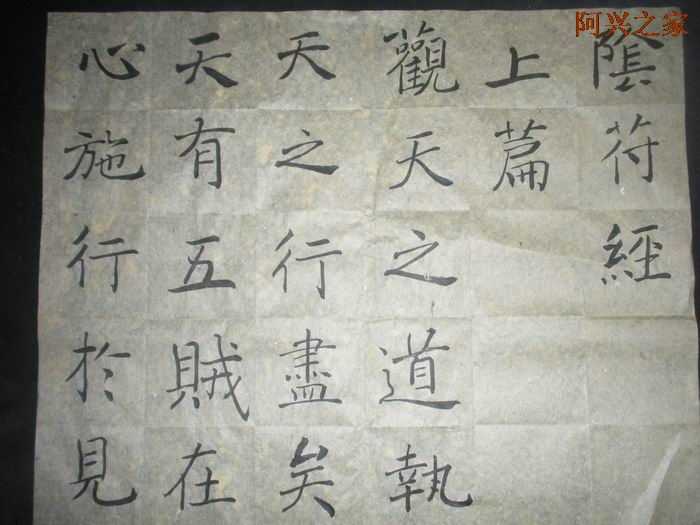 阿兴之家
陰符經
上篇
觀天之道執
天之行盡矣
天有五賊在
心施行於見